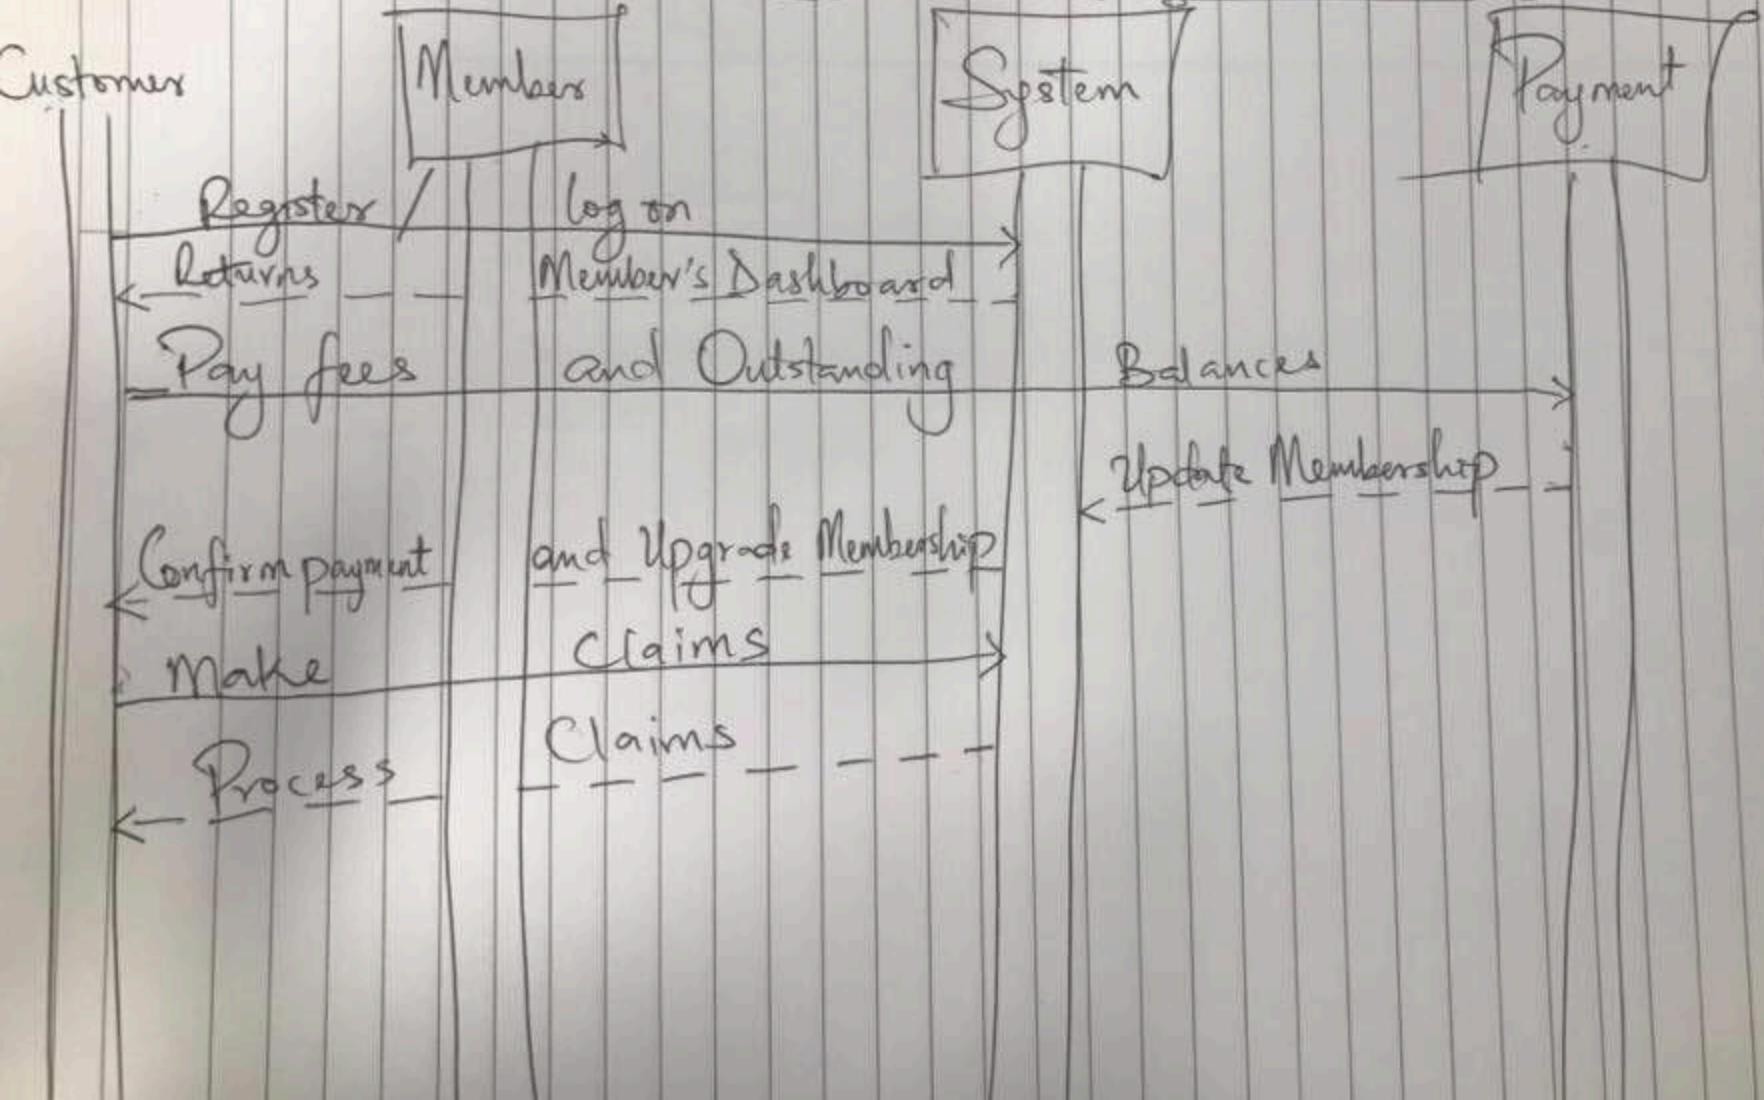 Customer Member System Payment
Register / log on
Returns Member's Dashboard
Pay fees and Outstanding Balances
Update Membership
Confirm payment and Upgrade Membership
Make Claims
Process Claims